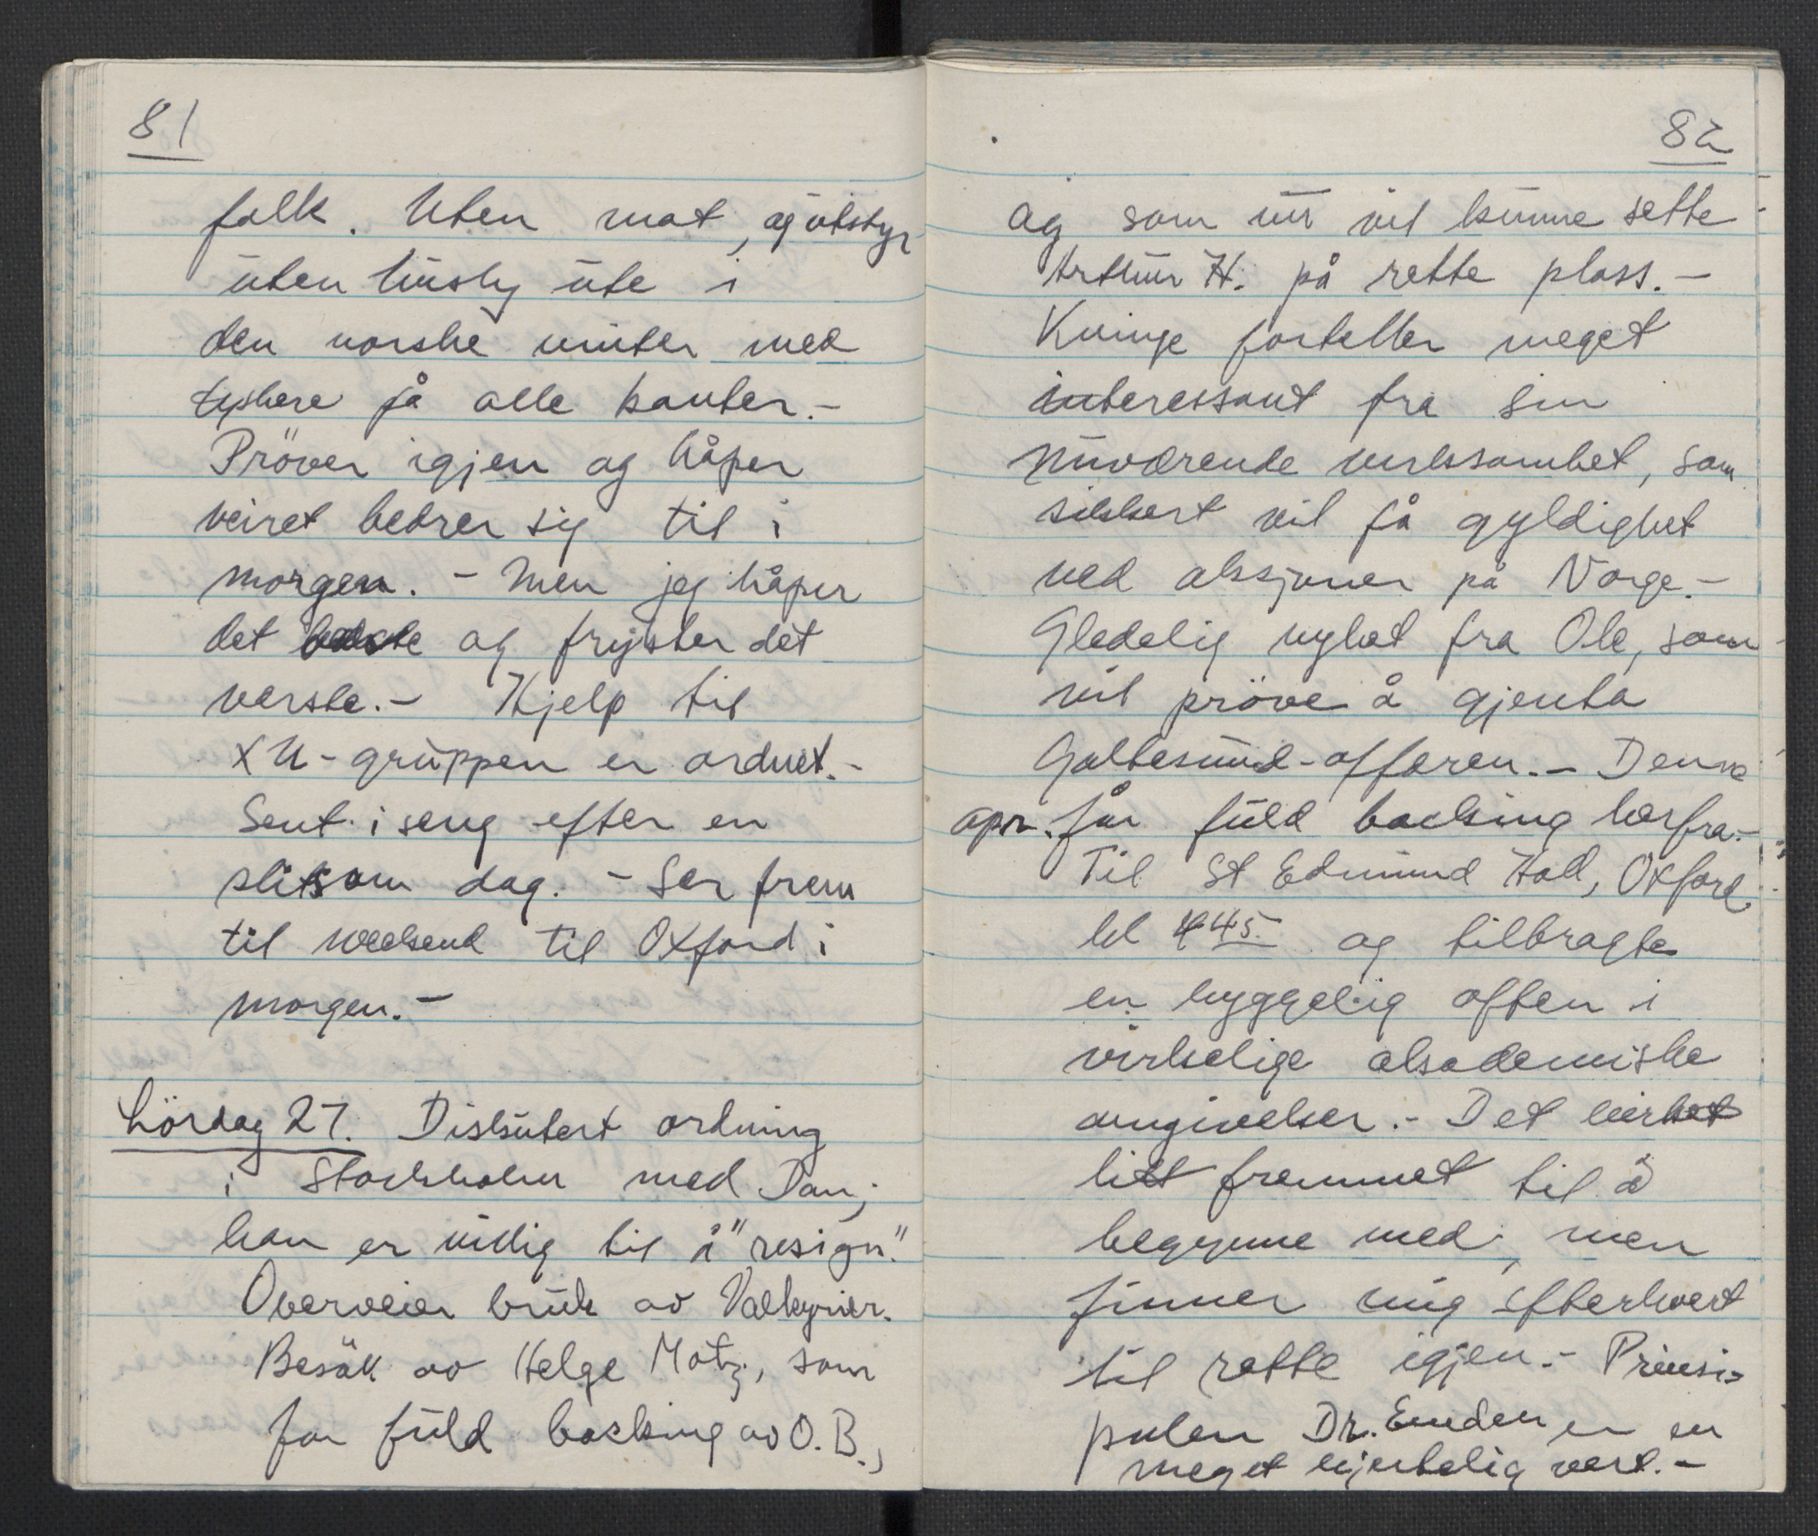 81
folk. Uten mat, og utstyr
uten husly ute i
den norske vinter med
tyskere på alle kanter.-
Pröver igjen og håper
veiret bedrer sig til i
morgen. - Men jeg håper
det beste og frykter det
verste.- Hjelp til
XU-gruppen er ordnet.-
Sent i seng efter en
slitsom dag. - Ser frem
til weekend til Oxford i
morgen.-
Lördag 27. Diskutert ordning
i Stockholm med Dan;
han er villig til å "resign".
Overveier bruk av Valkyrier.
Besök av Helge Motz, som
får full backing av O.B.,
82
og som nu vil kunne sette
Arthur H. på rette plass.-
Kvinge forteller meget
interessant fra sin
nuværende virksomhet, som
sikkert vil få gyldighet
ved aksjoner på Norge.-
Gledelig nyhet fra Ole, som
vil pröve å gjenta
Galtesund-affæren.- Denne
opr. får full backing herfra.-
Til St Edmund Hall, Oxford
kl 4 45 og tilbragte
en hyggelig aften i
virkelige akademiske
omgivelser.- Det virket
litt fremmet til å
begynne med, men
finner mig efterhvert
til rette igjen.- Prinsi-
palen Dr. Emden er en
meget hjertelig vert.-